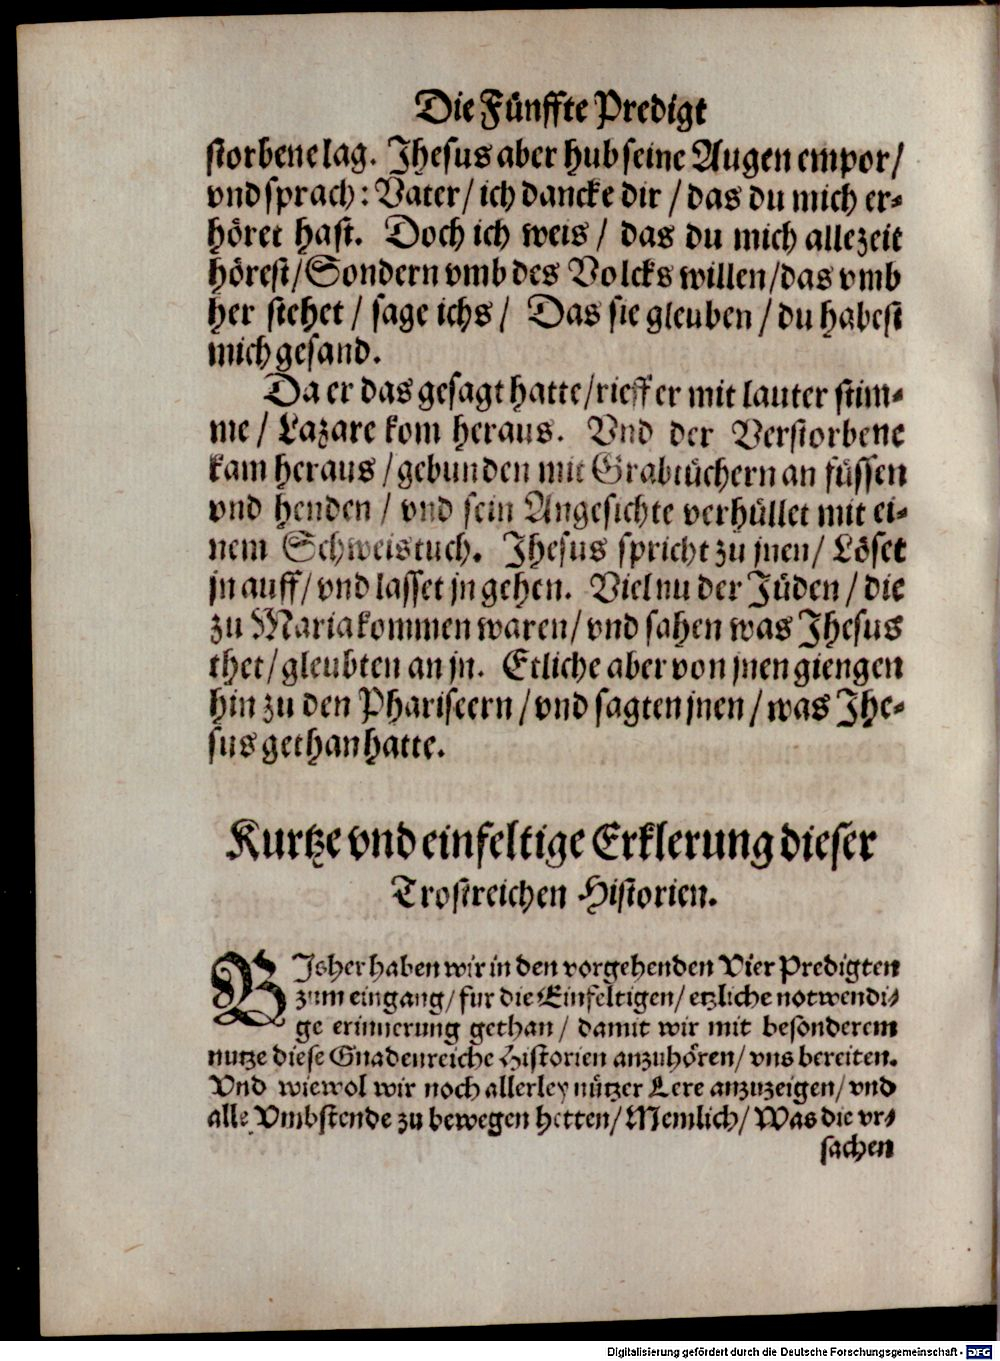 Die Fünffte Predigt
storbene lag. Jhesus aber hub seine Augen empor/
vnd sprach: Vater/ ich dancke dir / das du mich er-
höret hast. Doch ich weis / das du mich allezeit
hörest/Sondern vmb des Volcks willen/das vmb
her stehet / sage ichs / Das sie gleuben / du habest
mich gesand.
Da er das gesagt hatte/rieff er mit lauter stim-
me / Lazare kom heraus. Vnd der Verstorbene
kam heraus / gebunden mit Grabtüchern an füssen
vnd henden / vnd sein Angesichte verhüllet mit ei-
nem Schweistuch. Jhesus spricht zu jnen/ Löset
jn auff/ vnd lasset jn gehen. Viel nu der Jüden / die
zu Maria kommen waren/ vnd sahen was Jhesus
thet/ gleubten an jn. Etliche aber von jnen giengen
hin zu den Phariseern / vnd sagten jnen / was Jhe-
sus gethan hatte.
Kurtze vnd einfeltige Erklerung dieser
Trostreichen Historien.
BJsher haben wir in den vorgehenden Vier Predigten
zum eingang/ für die Einfeltigen/ etzliche notwendi-
ge erinnerung gethan / damit wir mit besonderem
nutze diese Gnadenreiche Historien anzuhören/ vns bereiten.
Vnd wiewol wir noch allerley nützer Lere anzuzeigen/ vnd
alle Vmbstende zu bewegen hetten/ Nemlich/ Was die vr-
sachen
Digitalisierung gefördert durch die Deutsche Forschungsgemeinschaft - DFG